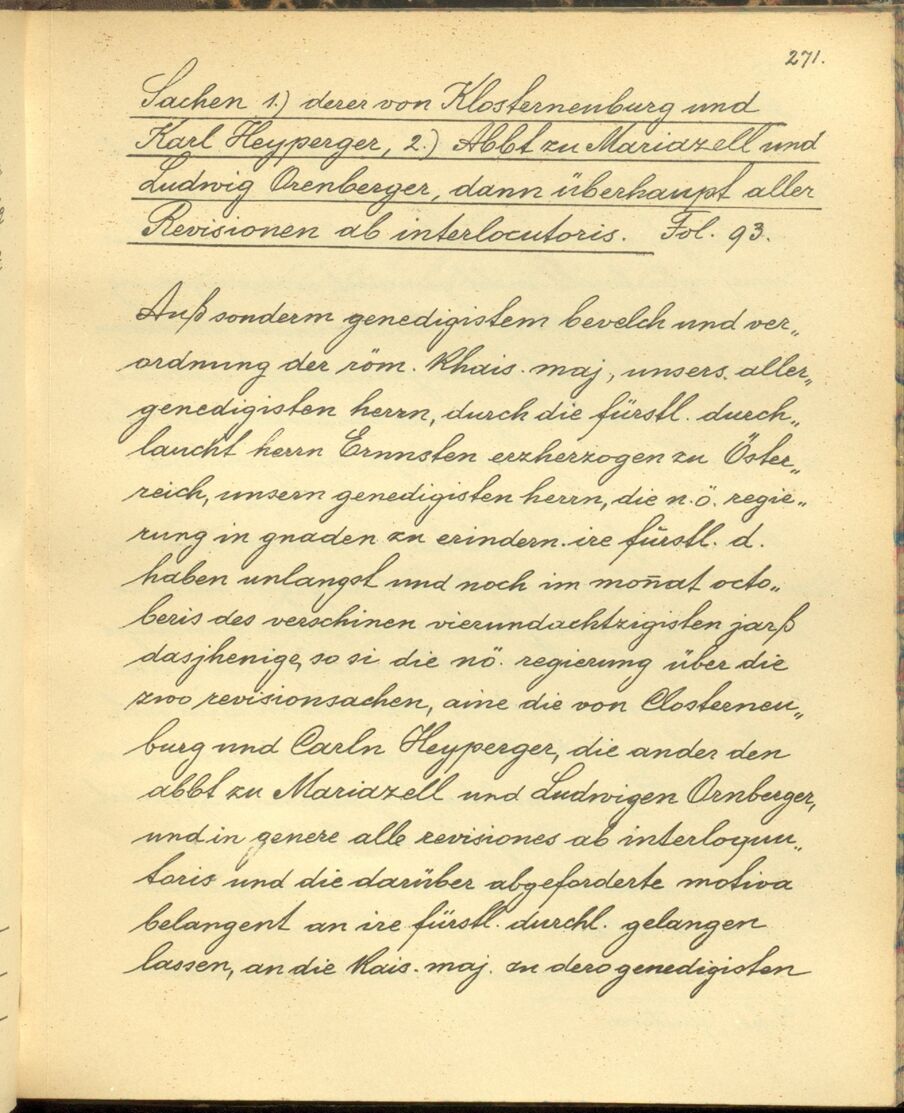 271.
Sachen 1.) derer von Klosterneuburg und
Karl Heyperger, 2.) Abbt zu Mariazell und
Ludwig Orenberger, dann überhaupt aller
Revisionen ab interlocutoris. Fol. 93.
Auß sonderm genedigistem bevelch und ver„
ordnung der röm. khais. maj, unsers aller„
genedigisten herrn, durch die fürstl. durch„
laucht herrn Ernnsten erzherzogen zu Öster„
reich, unsern genedigisten herrn, die n.ö. regie„
rung in gnaden zu erindern. ire fürstl. d.
haben unlangst und noch im mon̄at octo„
beris des verschinen vierundachtzigisten jarß
dasjhenige, so si die nö. regierung über die
zwo revisionsachen, aine die von Closterneu„
burg und Carln Heyperger, die ander den
abbt zu Mariazell und Ludwigen Ornberger,
und in genere alle revisiones ab interloquu„
toris und die darüber abgeforderte motiva
belangent an ire fürstl. durchl. gelangen
lassen, an die kais. maj. zu dero genedigisten